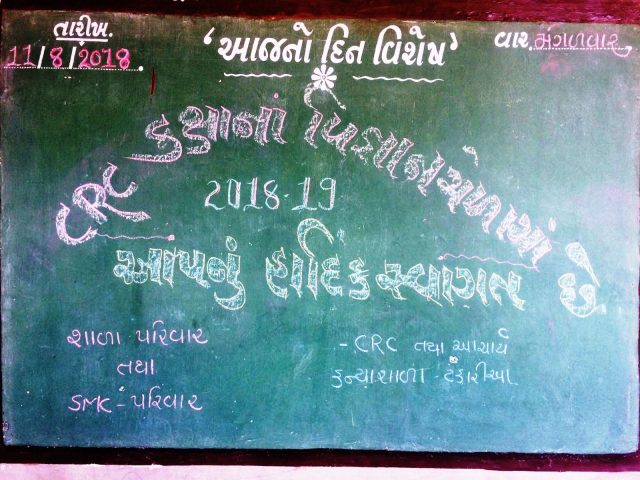 તારીખ.
11/8/2018.
‘આજનો દિન વિશેષ’
વાર. મંગળવાર
CRC કક્ષાનાં વિજ્ઞાનમેળામાં
2018-19
આપનું હાર્દિક સ્વાગત છે
શાળા પરિવાર
તથા
SMC - પરિવાર
- CRC તથા આચાર્ય
કન્યાશાળા - ટંકારીઆ